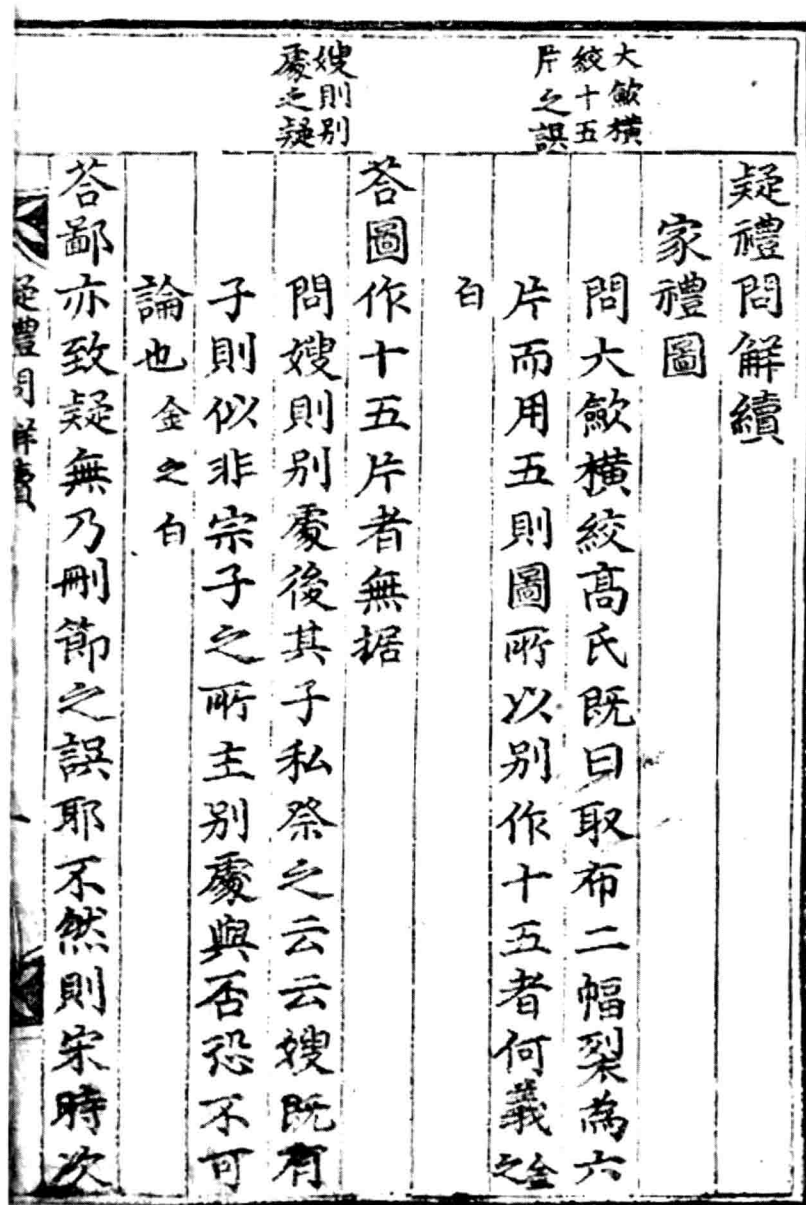 大斂横
絞十五
片之誤
嫂則别
處之疑
疑禮問解續
家禮圖
問大斂横絞髙氏既曰取布二幅裂爲六
片而用五則圖所以别作十五者何義金之
白
荅圖作十五片者無据
問嫂則别處後其子私祭之云云嫂既有
子則似非宗子之所主别處與否恐不可
論也金之白
荅鄙亦致疑無乃刪節之誤耶不然則宋時次
疑禮問解續
一